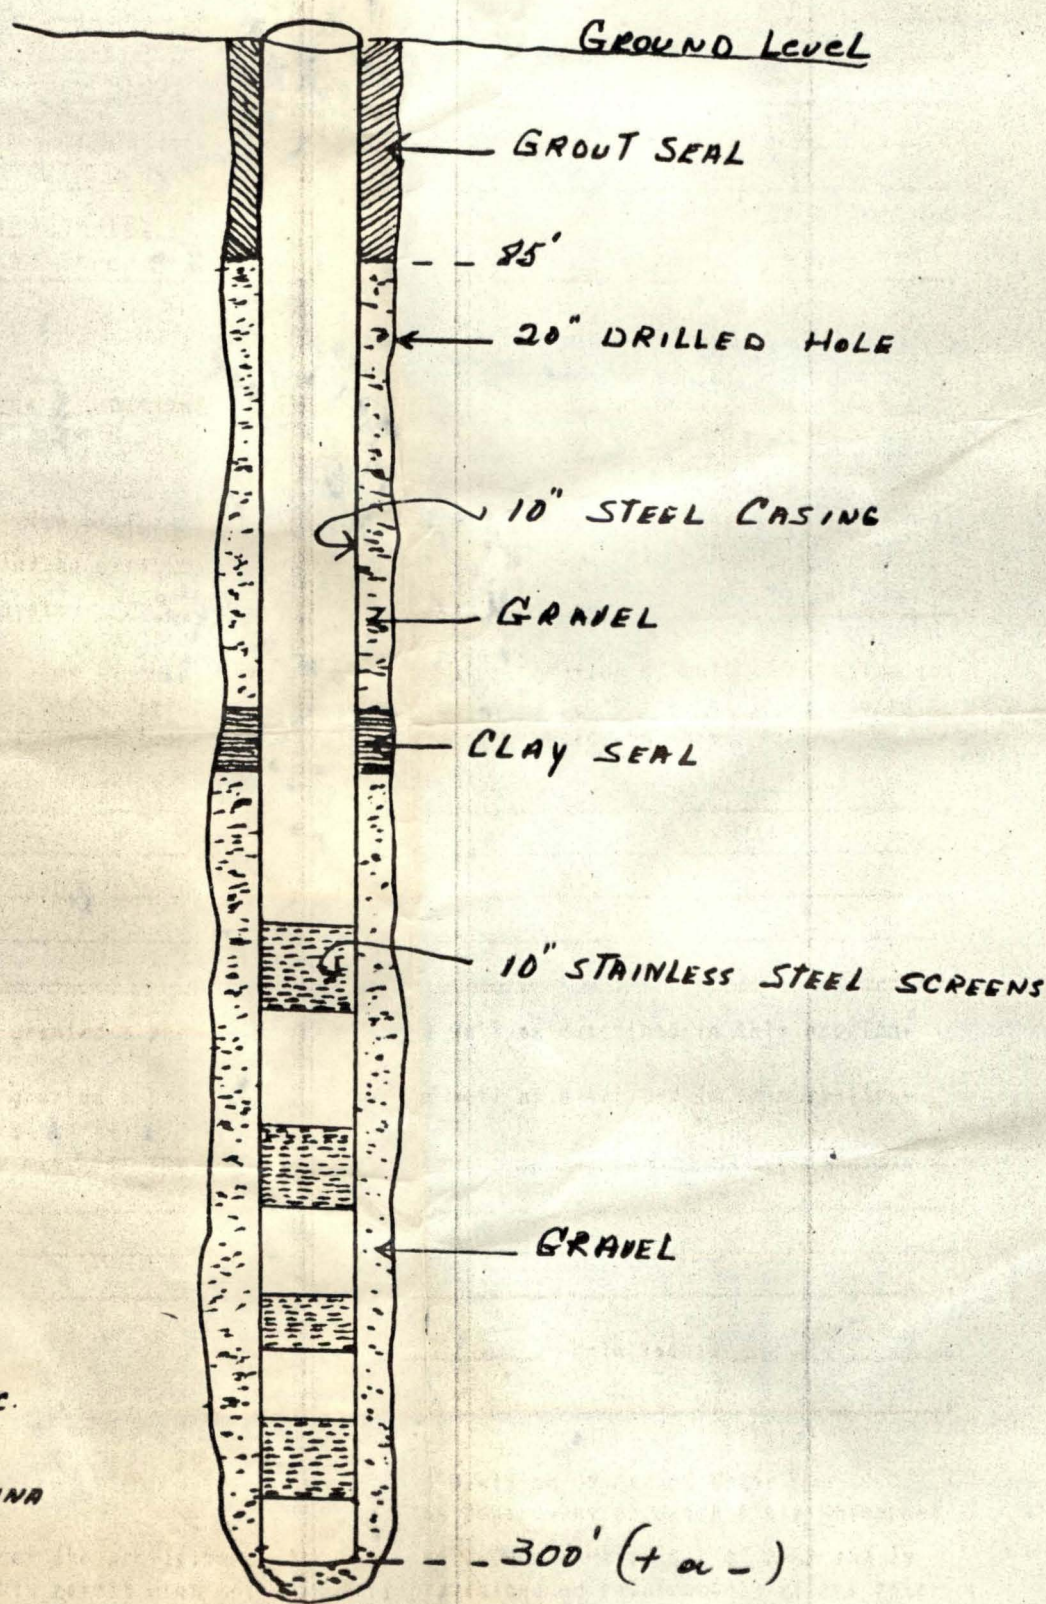 GROUND LEVEL
GROUT SEAL
85'
20" DRILLED HOLE
10" STEEL CASING
GRAVEL
CLAY SEAL
10" STAINLESS STEEL SCREENS
GRAVEL
300' (+ or -)